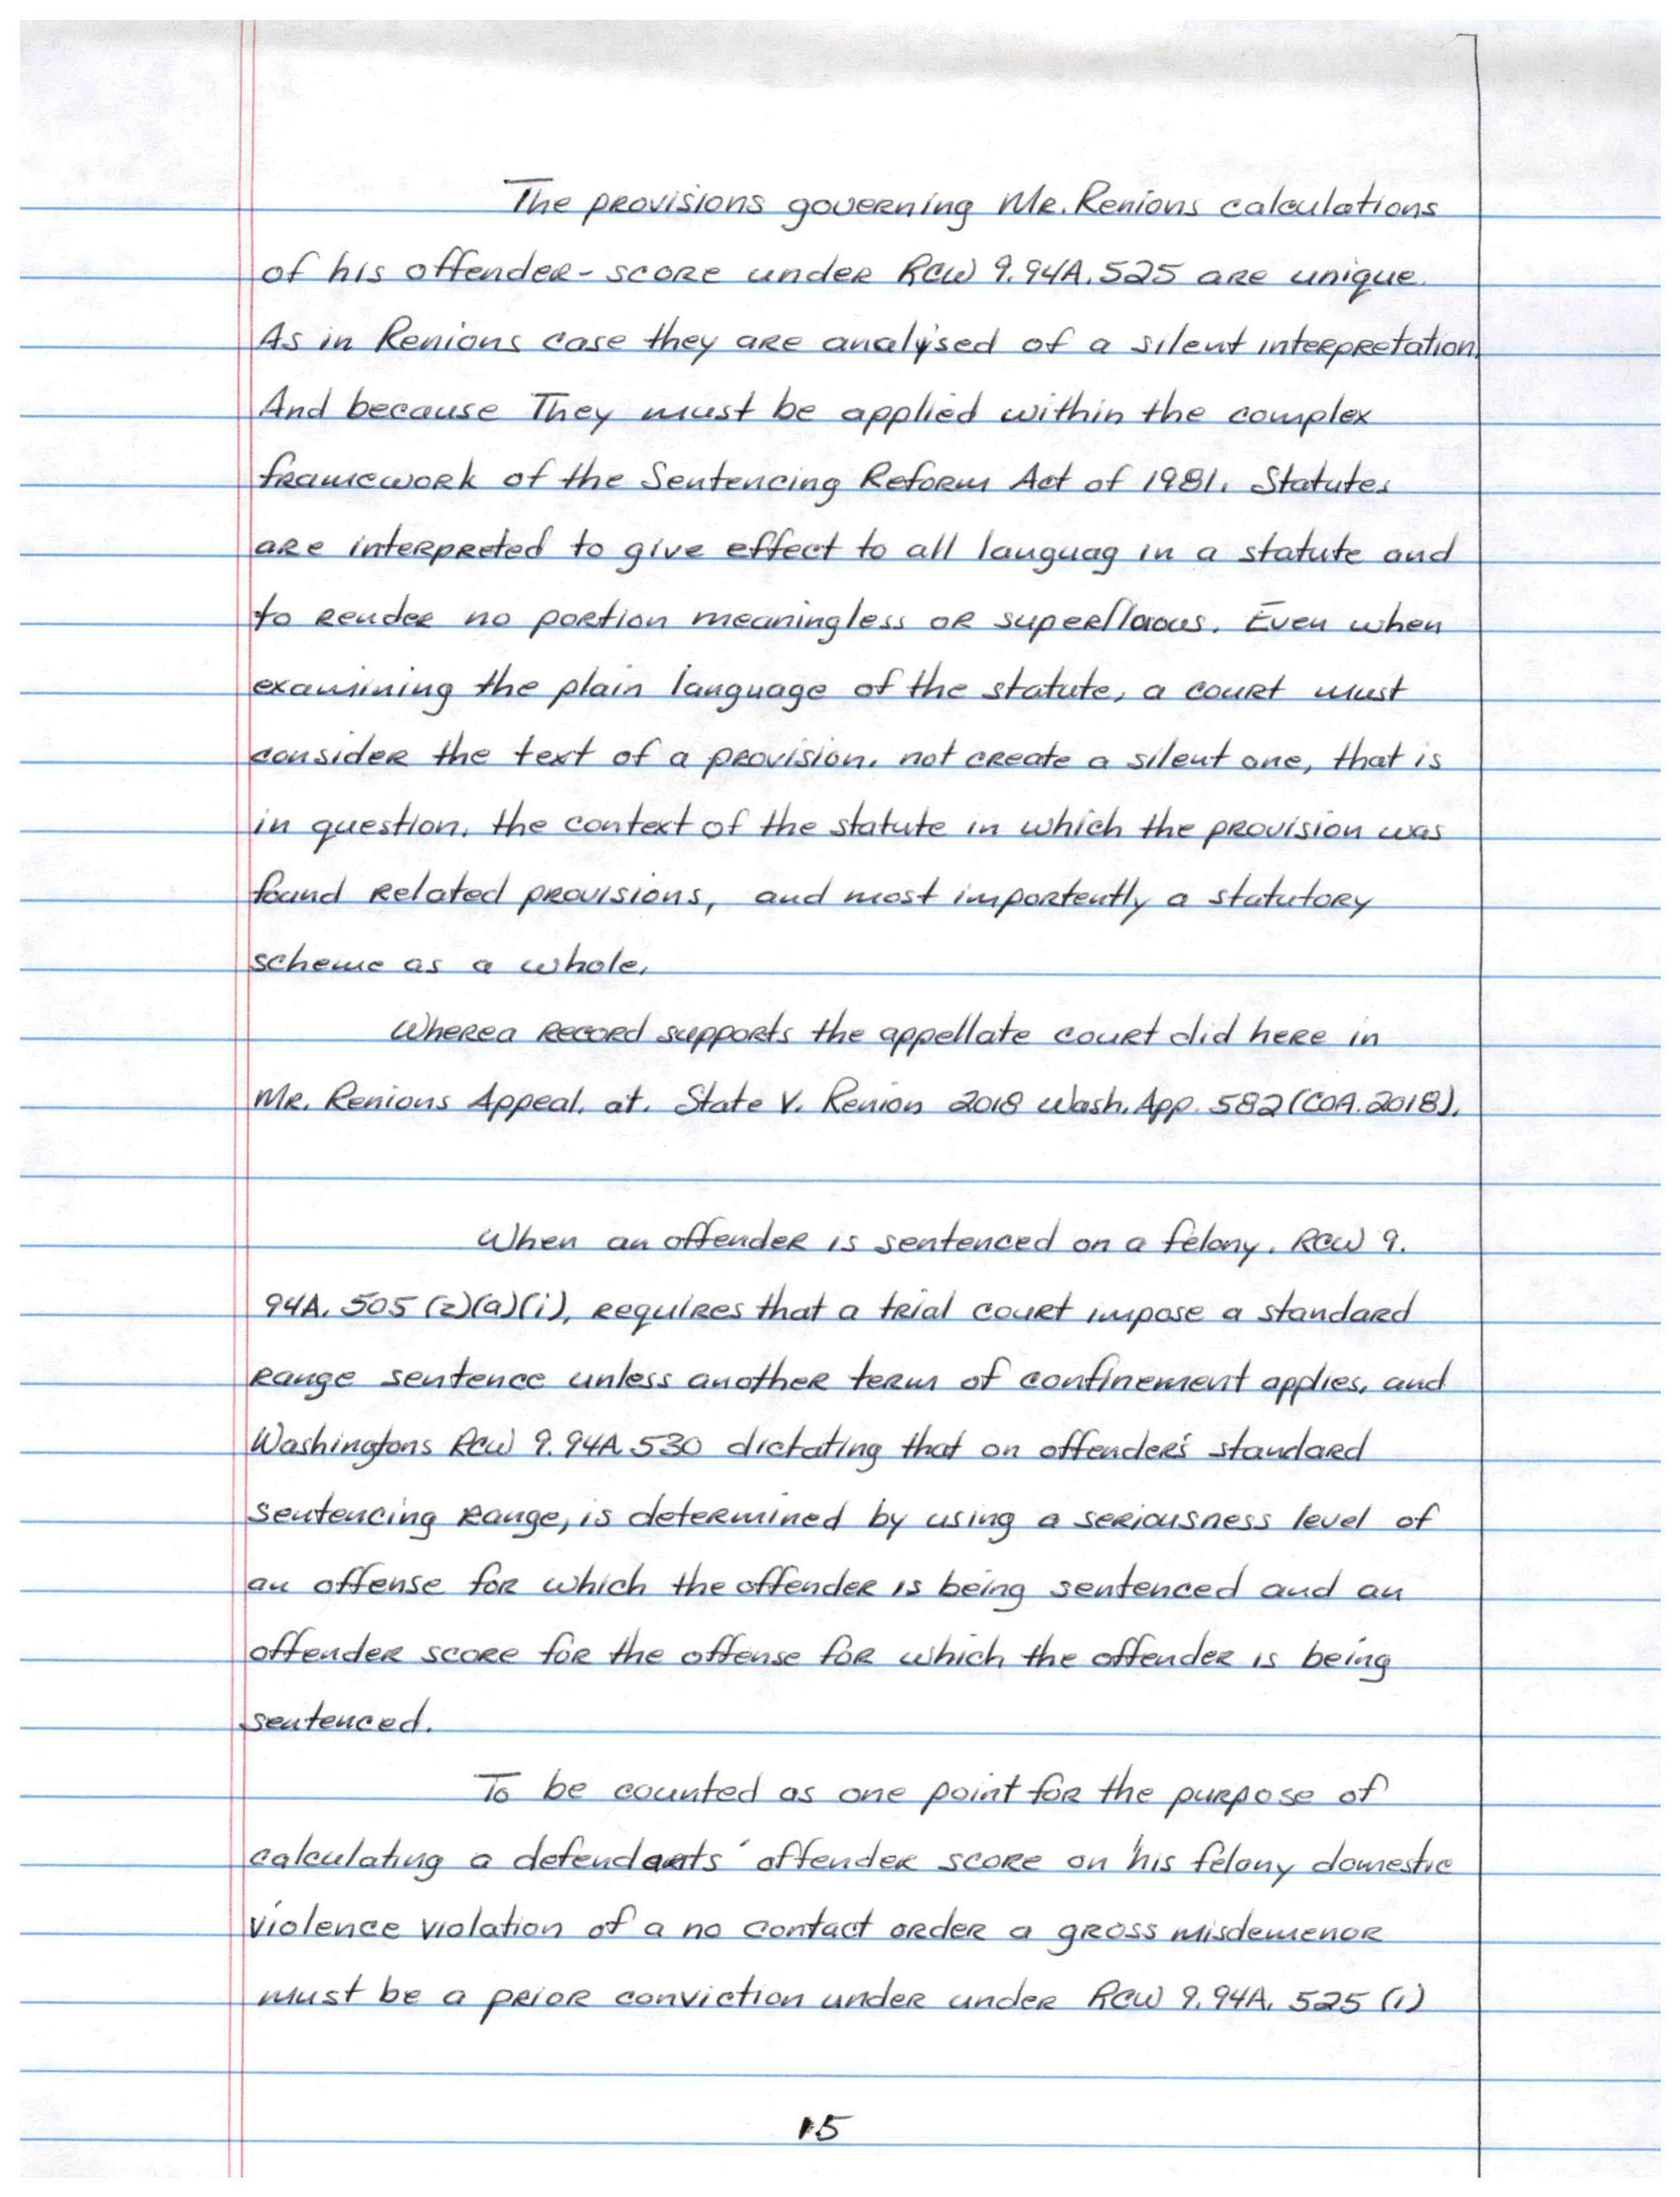 The provisions governing Mr. Renions calculations
of his offender-score under RCW 9.94A.525 are unique.
As in Renions case they are analysed of a silent interpretation.
And because They must be applied within the complex
framework of the Sentencing Reform Act of 1981. Statutes
are interpreted to give effect to all languag in a statute and
to render no portion meaningless or superflaous. Even when
examining the plain language of the statute, a court must
consider the text of a provision. not create a silent one, that is
in question. the context of the statute in which the provision was
found related provisions, and most importently a statutory
scheme as a whole.
Wherea record supports the appellate court did here in
Mr. Renions Appeal. at. State V. Renion 2018 Wash. App. 582 (COA. 2018).
When an offender is sentenced on a felony. RCW 9.
94A. 505 (2)(a)(i), requires that a trial court impose a standard
range sentence unless another term of confinement applies, and
Washingtons RCW 9.94A 530 dictating that on offender's standard
sentencing range, is determined by using a seriousness level of
an offense for which the offender is being sentenced and an
offender score for the offense for which the offender is being
sentenced.
To be counted as one point for the purpose of
calculating a defendants' offender score on his felony domestic
violence violation of a no contact order a gross misdemenor
must be a prior conviction under under RCW 9.94A. 525 (1)
15